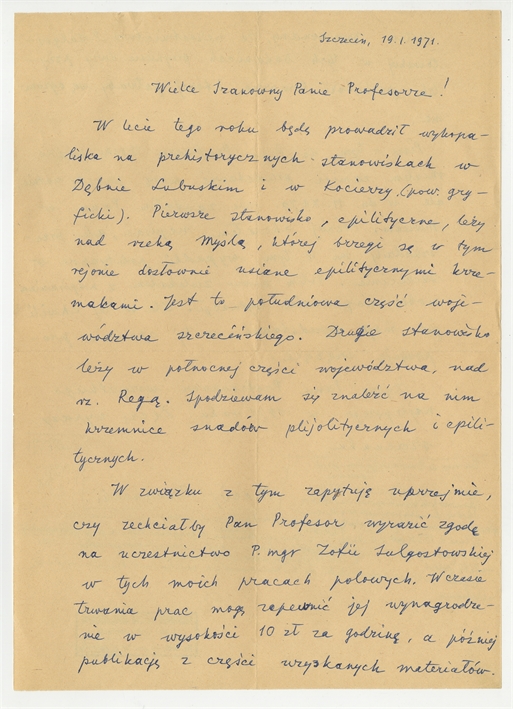 Szczecin, 19.I.1971.
Wielce Szanowny Panie Profesorze!
W lecie tego roku będę prowadził wykopa-
liska na prehistorycznych stanowiskach w
Dębnie Lubuskim i w Kocierzy (pow. gry-
ficki). Pierwsze stanowisko, epilityczne, leży
nad rzeką Myślą, której brzegi są w tym
rejonie dosłownie usiane epilitycznymi krze-
makami. Jest to południowa część woje-
wództwa szczecińskiego. Drugie stanowisko
leży w północnej części województwa, nad
rz. Regą. Spodziewam się znaleźć na nim
krzemnice śladów plijolitycznych i epili-
tycznych.
W związku z tym zapytuję uprzejmie,
czy zechciałby Pan Profesor wyrazić zgodę
na uczestnictwo P. mgr Zofii Sulgostowskiej
w tych moich pracach polowych. W czasie
trwania prac mogę zapewnić jej wynagrodze-
nie w wysokości 10 zł za godzinę, a później
publikację z części uzyskanych materiałów.